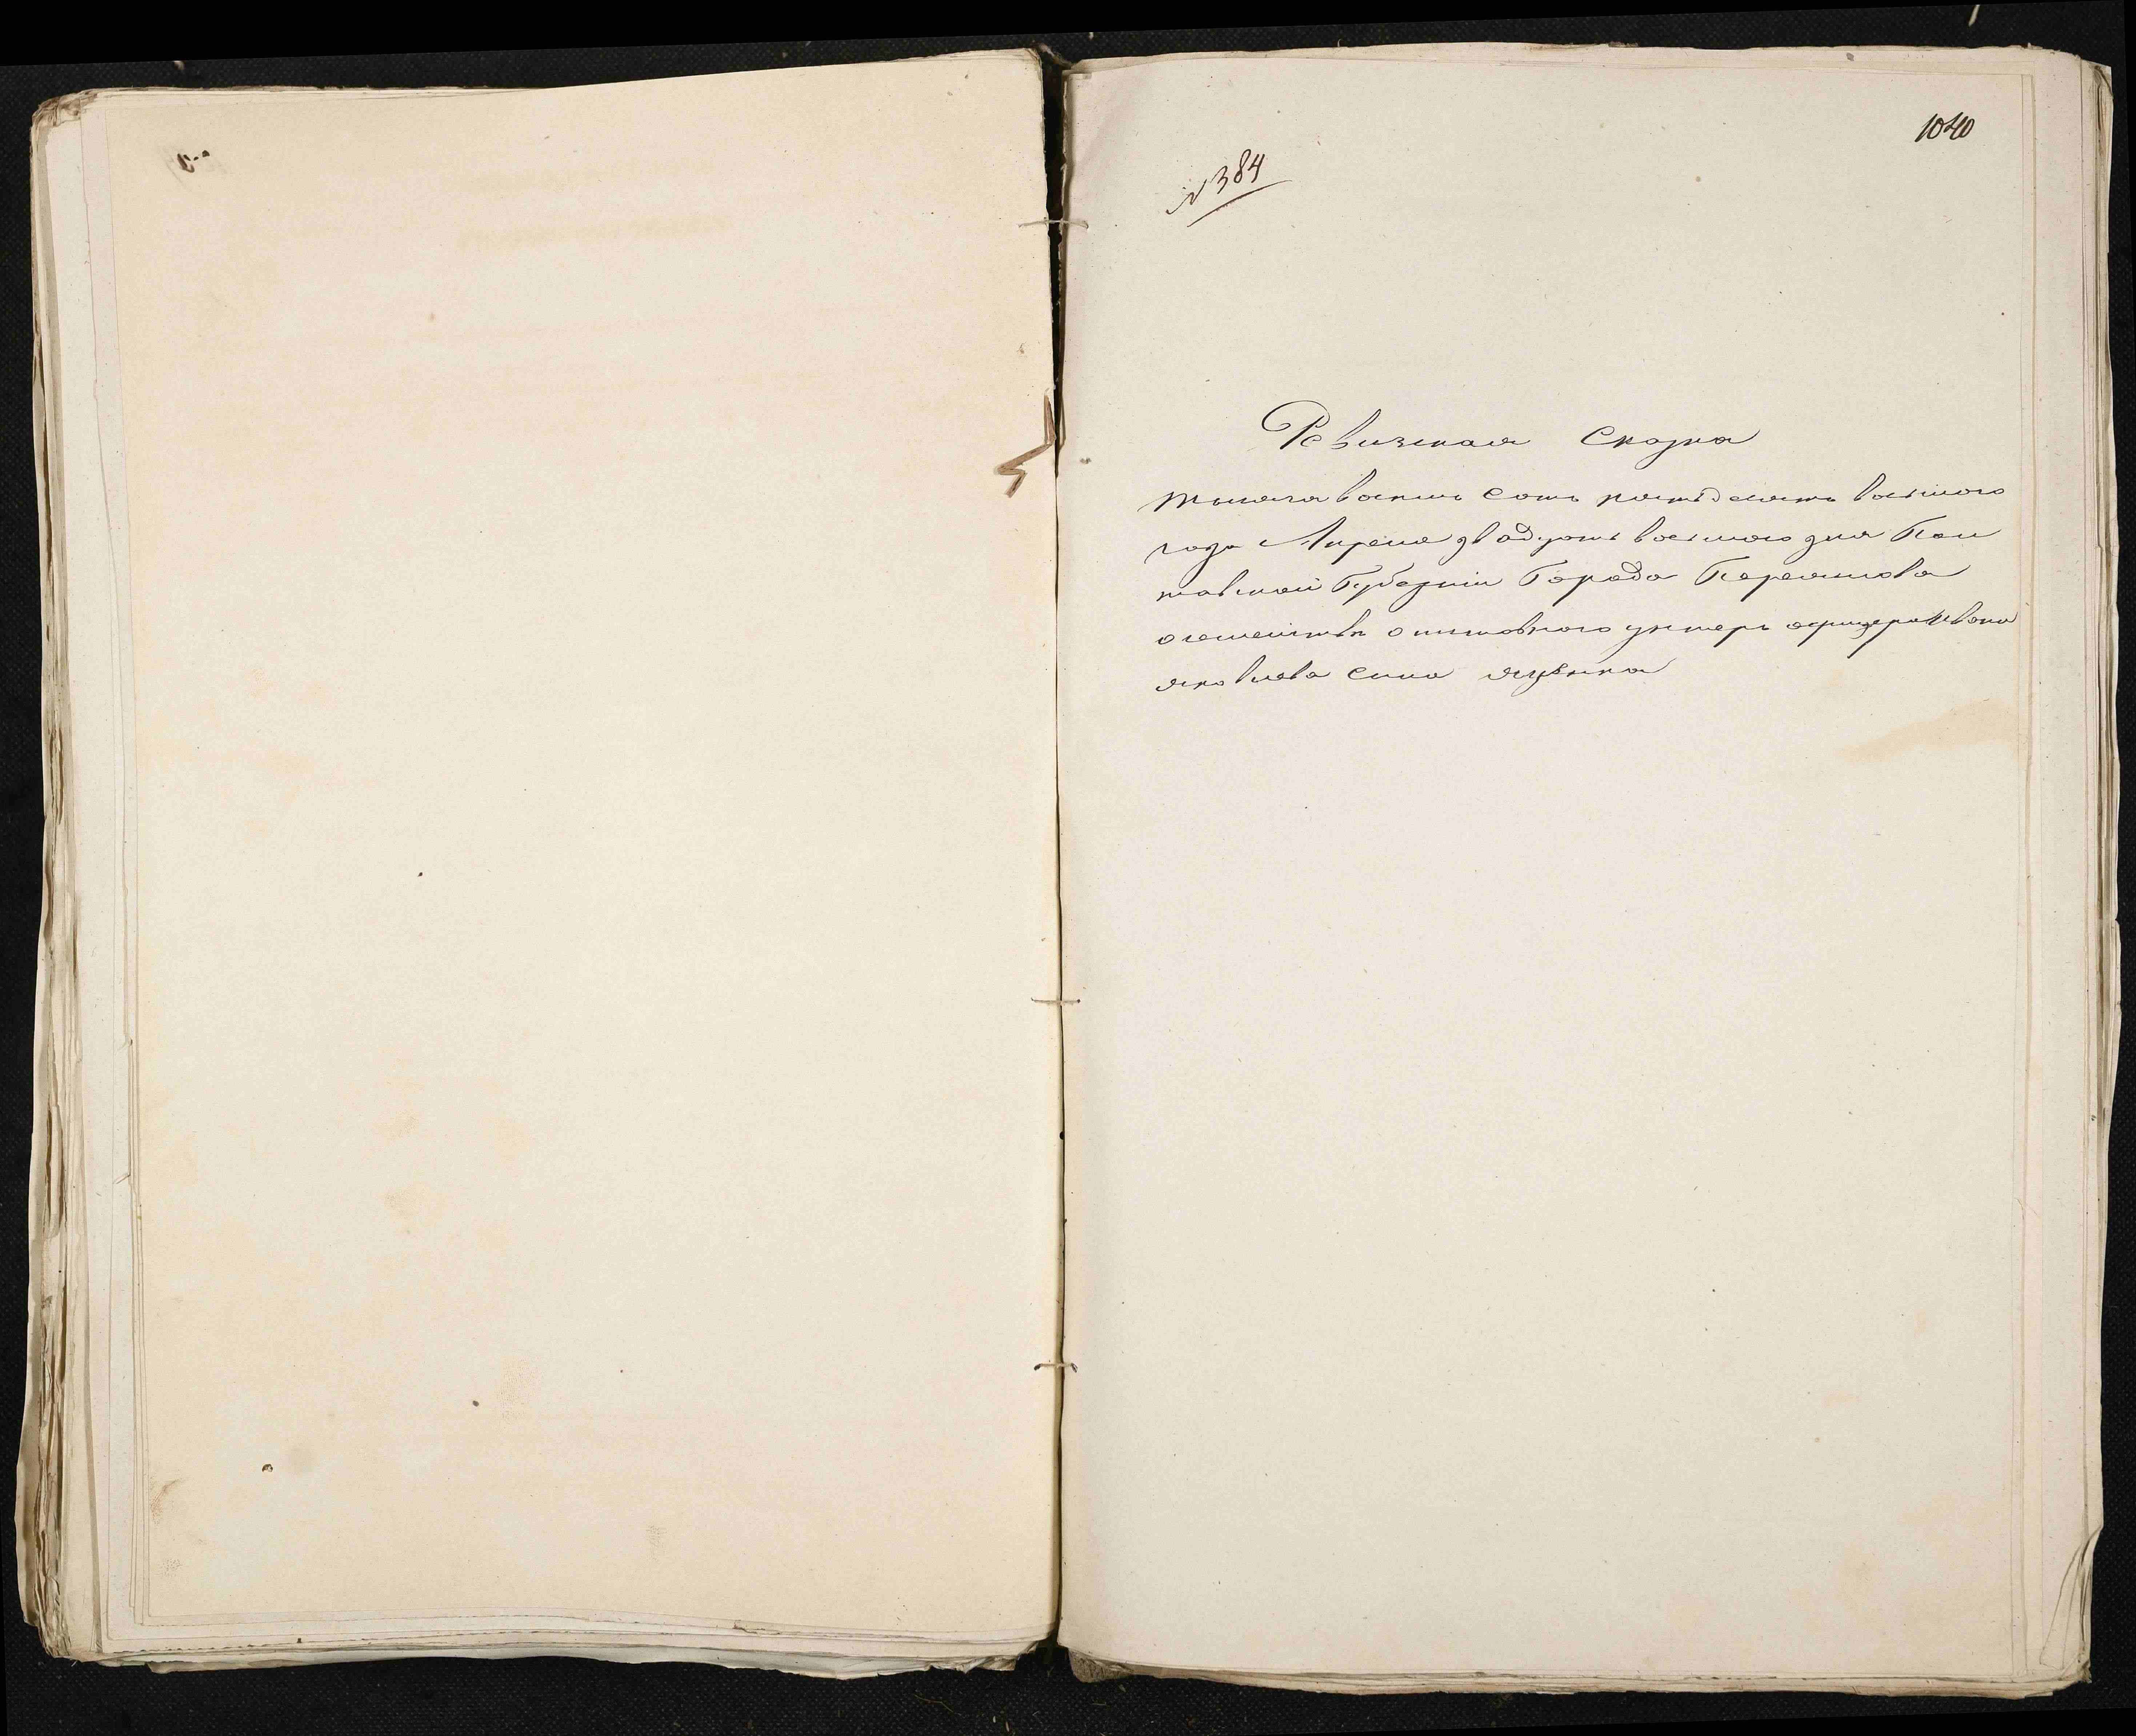 1040
№ 384
Ревизская Сказка
тысяча восемь сотъ пятьдесятъ восьмого
года Апреля двадцать восьмого дня Пол
тавской Губерніи Города Переяслова
осемействѣ отставного унтеръ офицера Ивана
яковлева сина яценка